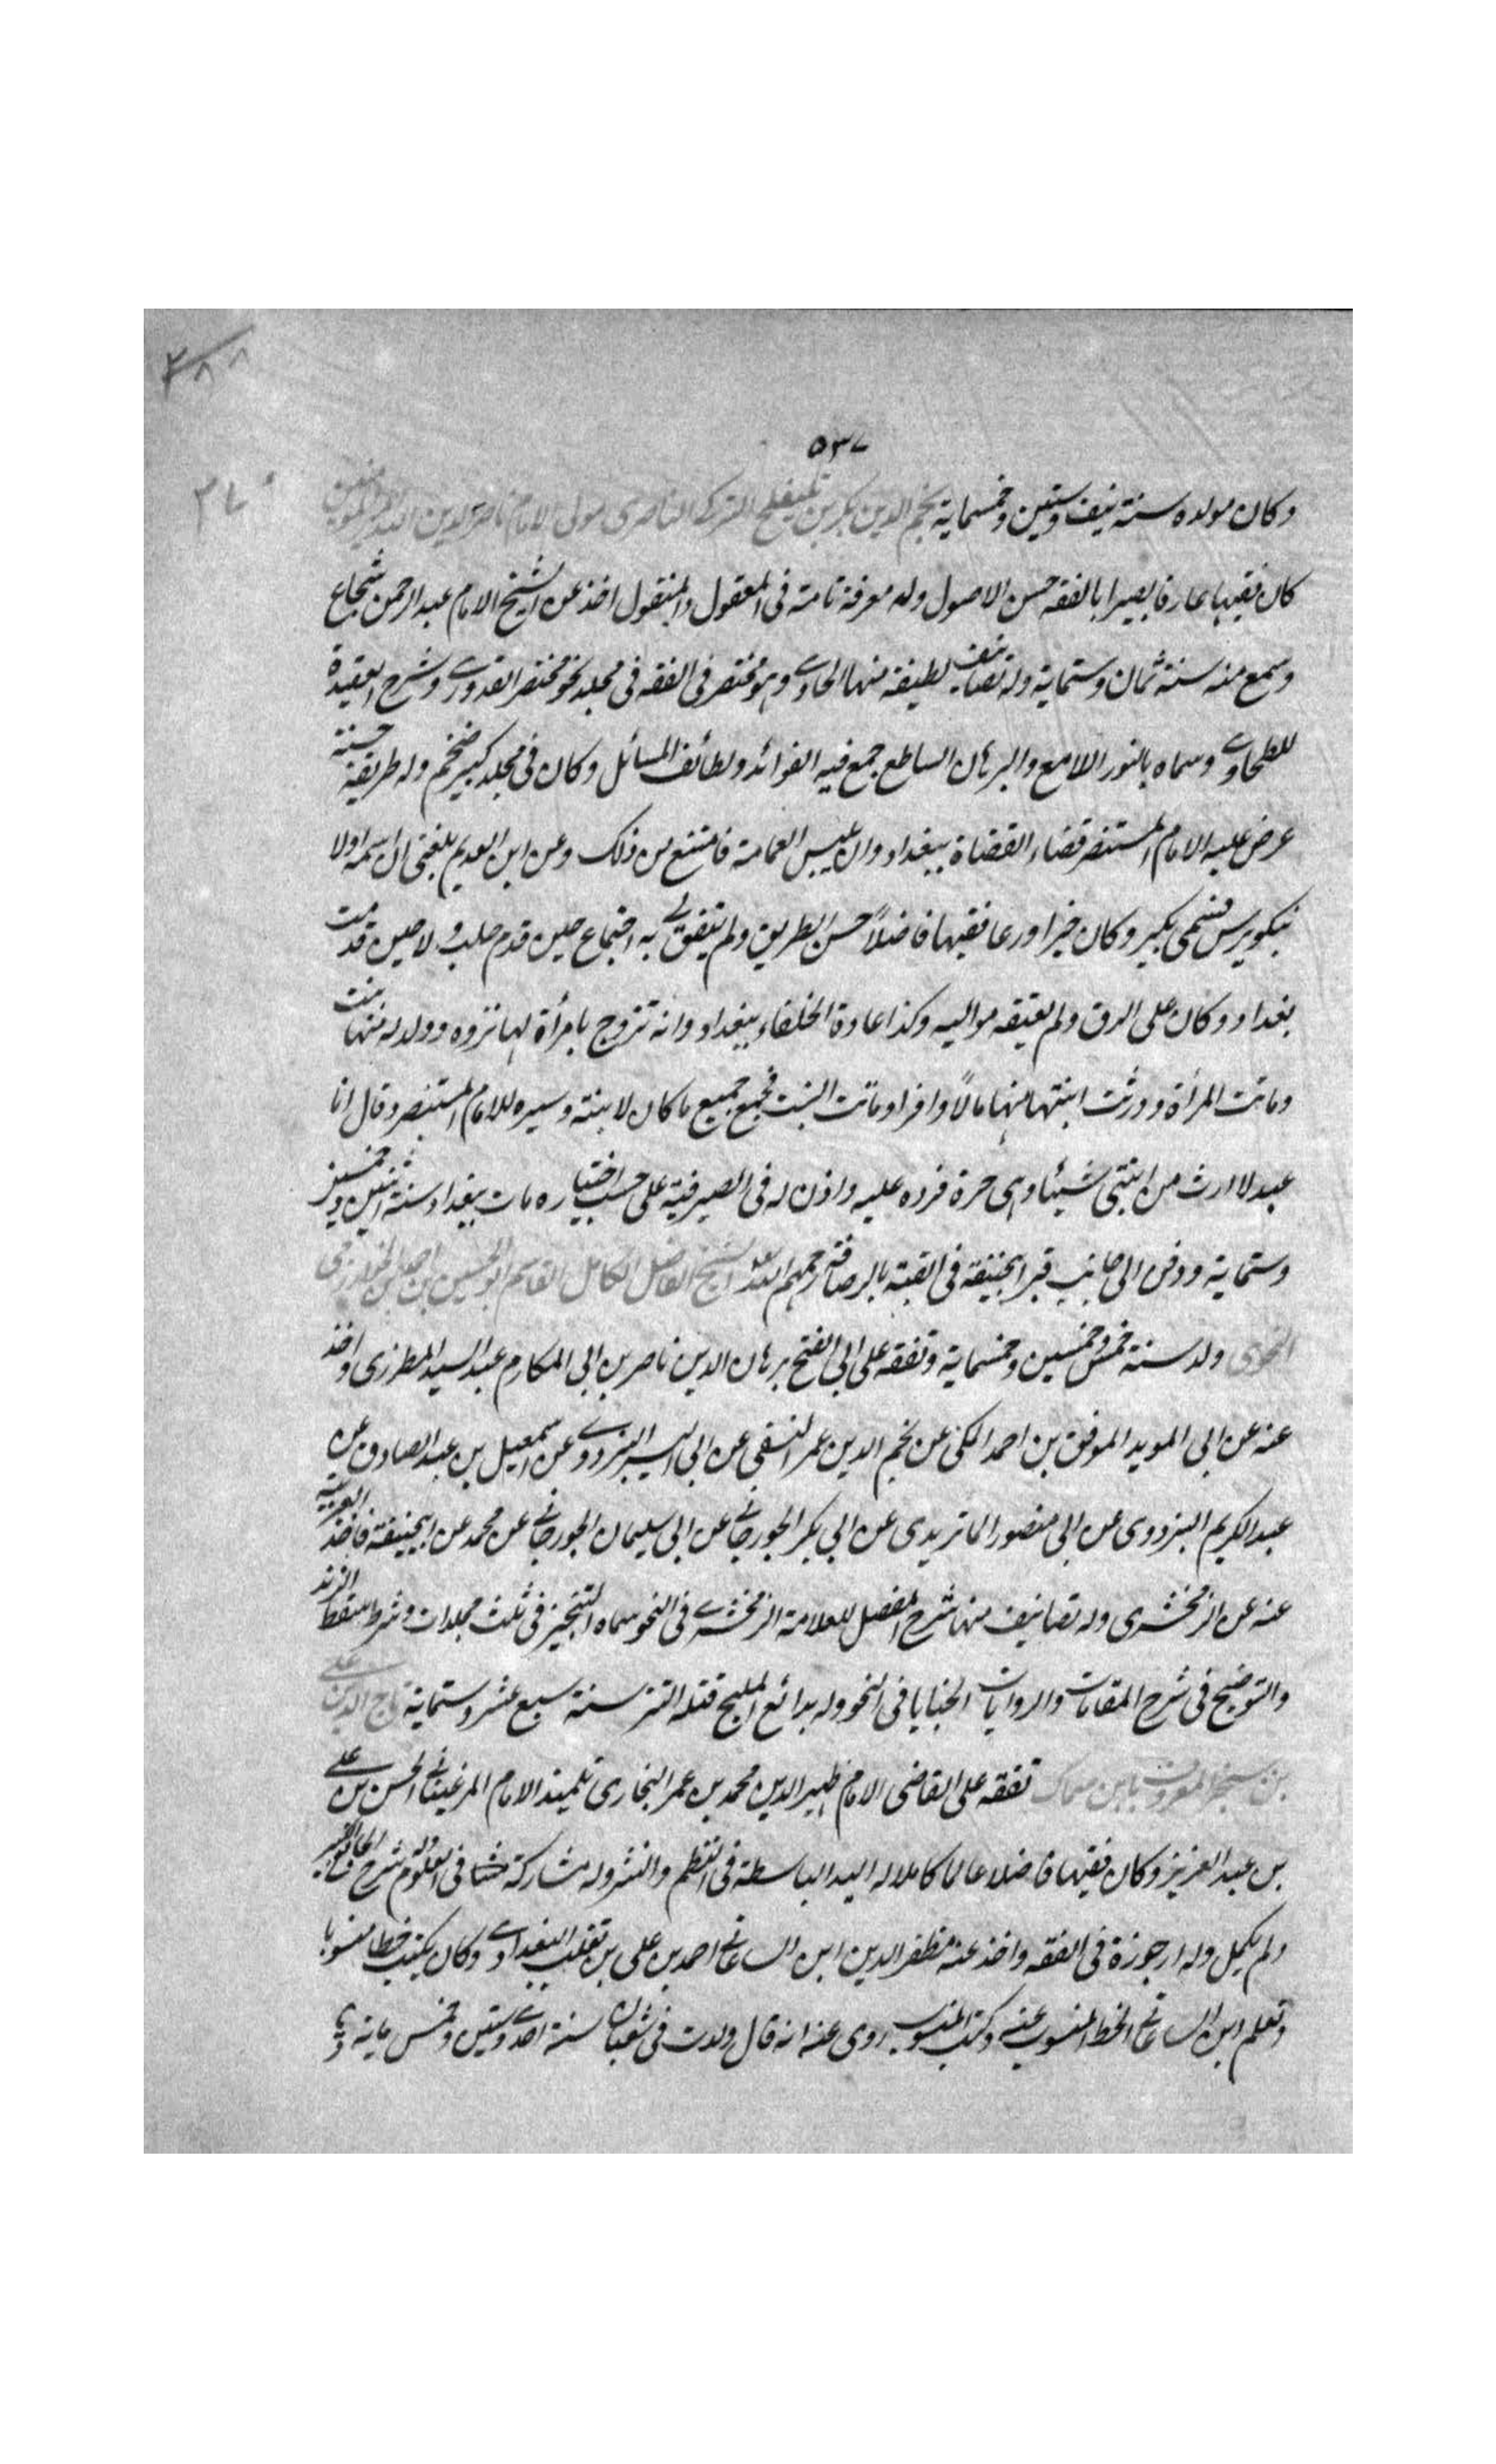 ٥٣٧
وكان مولده سنة نيف وستين وخمسماية نجم الدين بكبرس بن يلنقلج التركى الناصرى مولى الامام الناصر لدين الله امير المومنين
كان فقيها عارفا بصيرا بالفقه حسن الاصول وله معرفة تامة فى المعقول والمنقول اخذ عن الشيخ الامام عبد الرحمن شجاع
وسمع منه سنة ثمان وستماية وله تصانيف لطيفة منها الحاوے وهو مختصر فى الفقه فى مجلد نحو مختصر القدورے وشرح العقيدة
للطحاوے وسماه بالنور اللامع والبرهان الساطع جمع فيه الفوائد ولطائف المسائل وكان فى مجلد كبير ضخم وله طريقة حسنة
عرض عليه الامام المستنصر قضاء القضاة ببغداد وان يلبس العمامة فامتنع من ذلك وعن ابن العديم بلغنى ان اسمه اولا
نبكويرس فسمى بكبر وكان خيرا ورعا فقيها فاضلاً حسن الطريق ولم يتفق لے به اجتماع حين قدم حلب ولا حين قدمت
بغداد وكان على الرق ولم يعتقه مواليه وكذا عادة الخلفاء ببغداد وانه تزوج بامرأة لها ثروه وولد له منها بنت
وماتت المرأة وورثت ابنتها منها مالاً وافرا وماتت البنت فجمع جميع ما كان لابنته وسيره للامام المستنصر وقال انا
عبد لا ارث من ابنتى شيئا وهى حرة فرده عليه واذن له فى الصيرفية على حسب اختياره مات ببغداد سنة اثنين وخمسين
وستماية ودفن الى جانب قبر ابيحنيفة فى القبة بالرصافة رحمهم الله الشيخ الفاضل الكامل القاسم ابو الحسين بن احمد الخوارزمى
النحوى ولد سنة خمس وخمسين وخمسماية وتفقه على ابى الفتح برهان الدين ناصر بن ابى المكارم عبد السيد المطرزى واخذ
عنه عن ابى المويد الموفق بن احمد المكى عن نجم الدين عمر النسفى عن ابى اليسر البزدوے عن اسمعيل بن عبد الصادق عن
عبد الكريم البزدوى عن ابى منصور الماتريدى عن ابى بكر الجورجانے عن ابى سليمان الجورجانے عن محمد عن ابيحنيفة فاخذ العربية
عنه عن الزمخشرى وله تصانيف منها شرح المفصل للعلامة الزمخشرے فى النحو سماه التخمير فى ثلث مجلدات وشرح سقط الزند
والتوضيح فى شرح المقامات والروايات الخبايا فى النحو وله بدائع الملح قتله التتر سنة سبع عشر وستماية تاج الدين على
بن سنجر المعروف بابن سماك تفقه على القاضى الامام ظهير الدين محمد بن عمر البخارى تلميذ الامام المرغينانے الحسن بن على
بن عبد العزيز وكان فقيها فاضلا عالما كاملا له اليد الباسطة فى النظم والنثر وله مشاركة حسنا فى العلوم وله شرح الجامع الكبير
ولم يكمل وله ارجوزة فى الفقه واخذ عنه مظفر الدين ابن الساعاتے احمد بن على بن تغلب البغدادے وكان يكتب خطا منسوبا
وتعلم ابن الساعاتے الخط المنسوب عنه وكتب المنسوب روى عنه انه قال ولدت فى شعبان سنة احدے وستين وخمس ماية